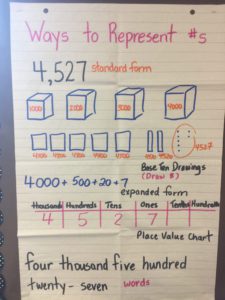 Ways to Represent #s
4,527 standard form
1000 2000 3000 4000
4100 4200 4300 4400 4500 4510 4520 4527
Base Ten Drawings
(Draw it)
4000 + 500 + 20 + 7
expanded form
Thousands Hundreds Tens Ones Tenths Hundredths
4 5 2 7
Place Value Chart
four thousand five hundred
twenty-seven words